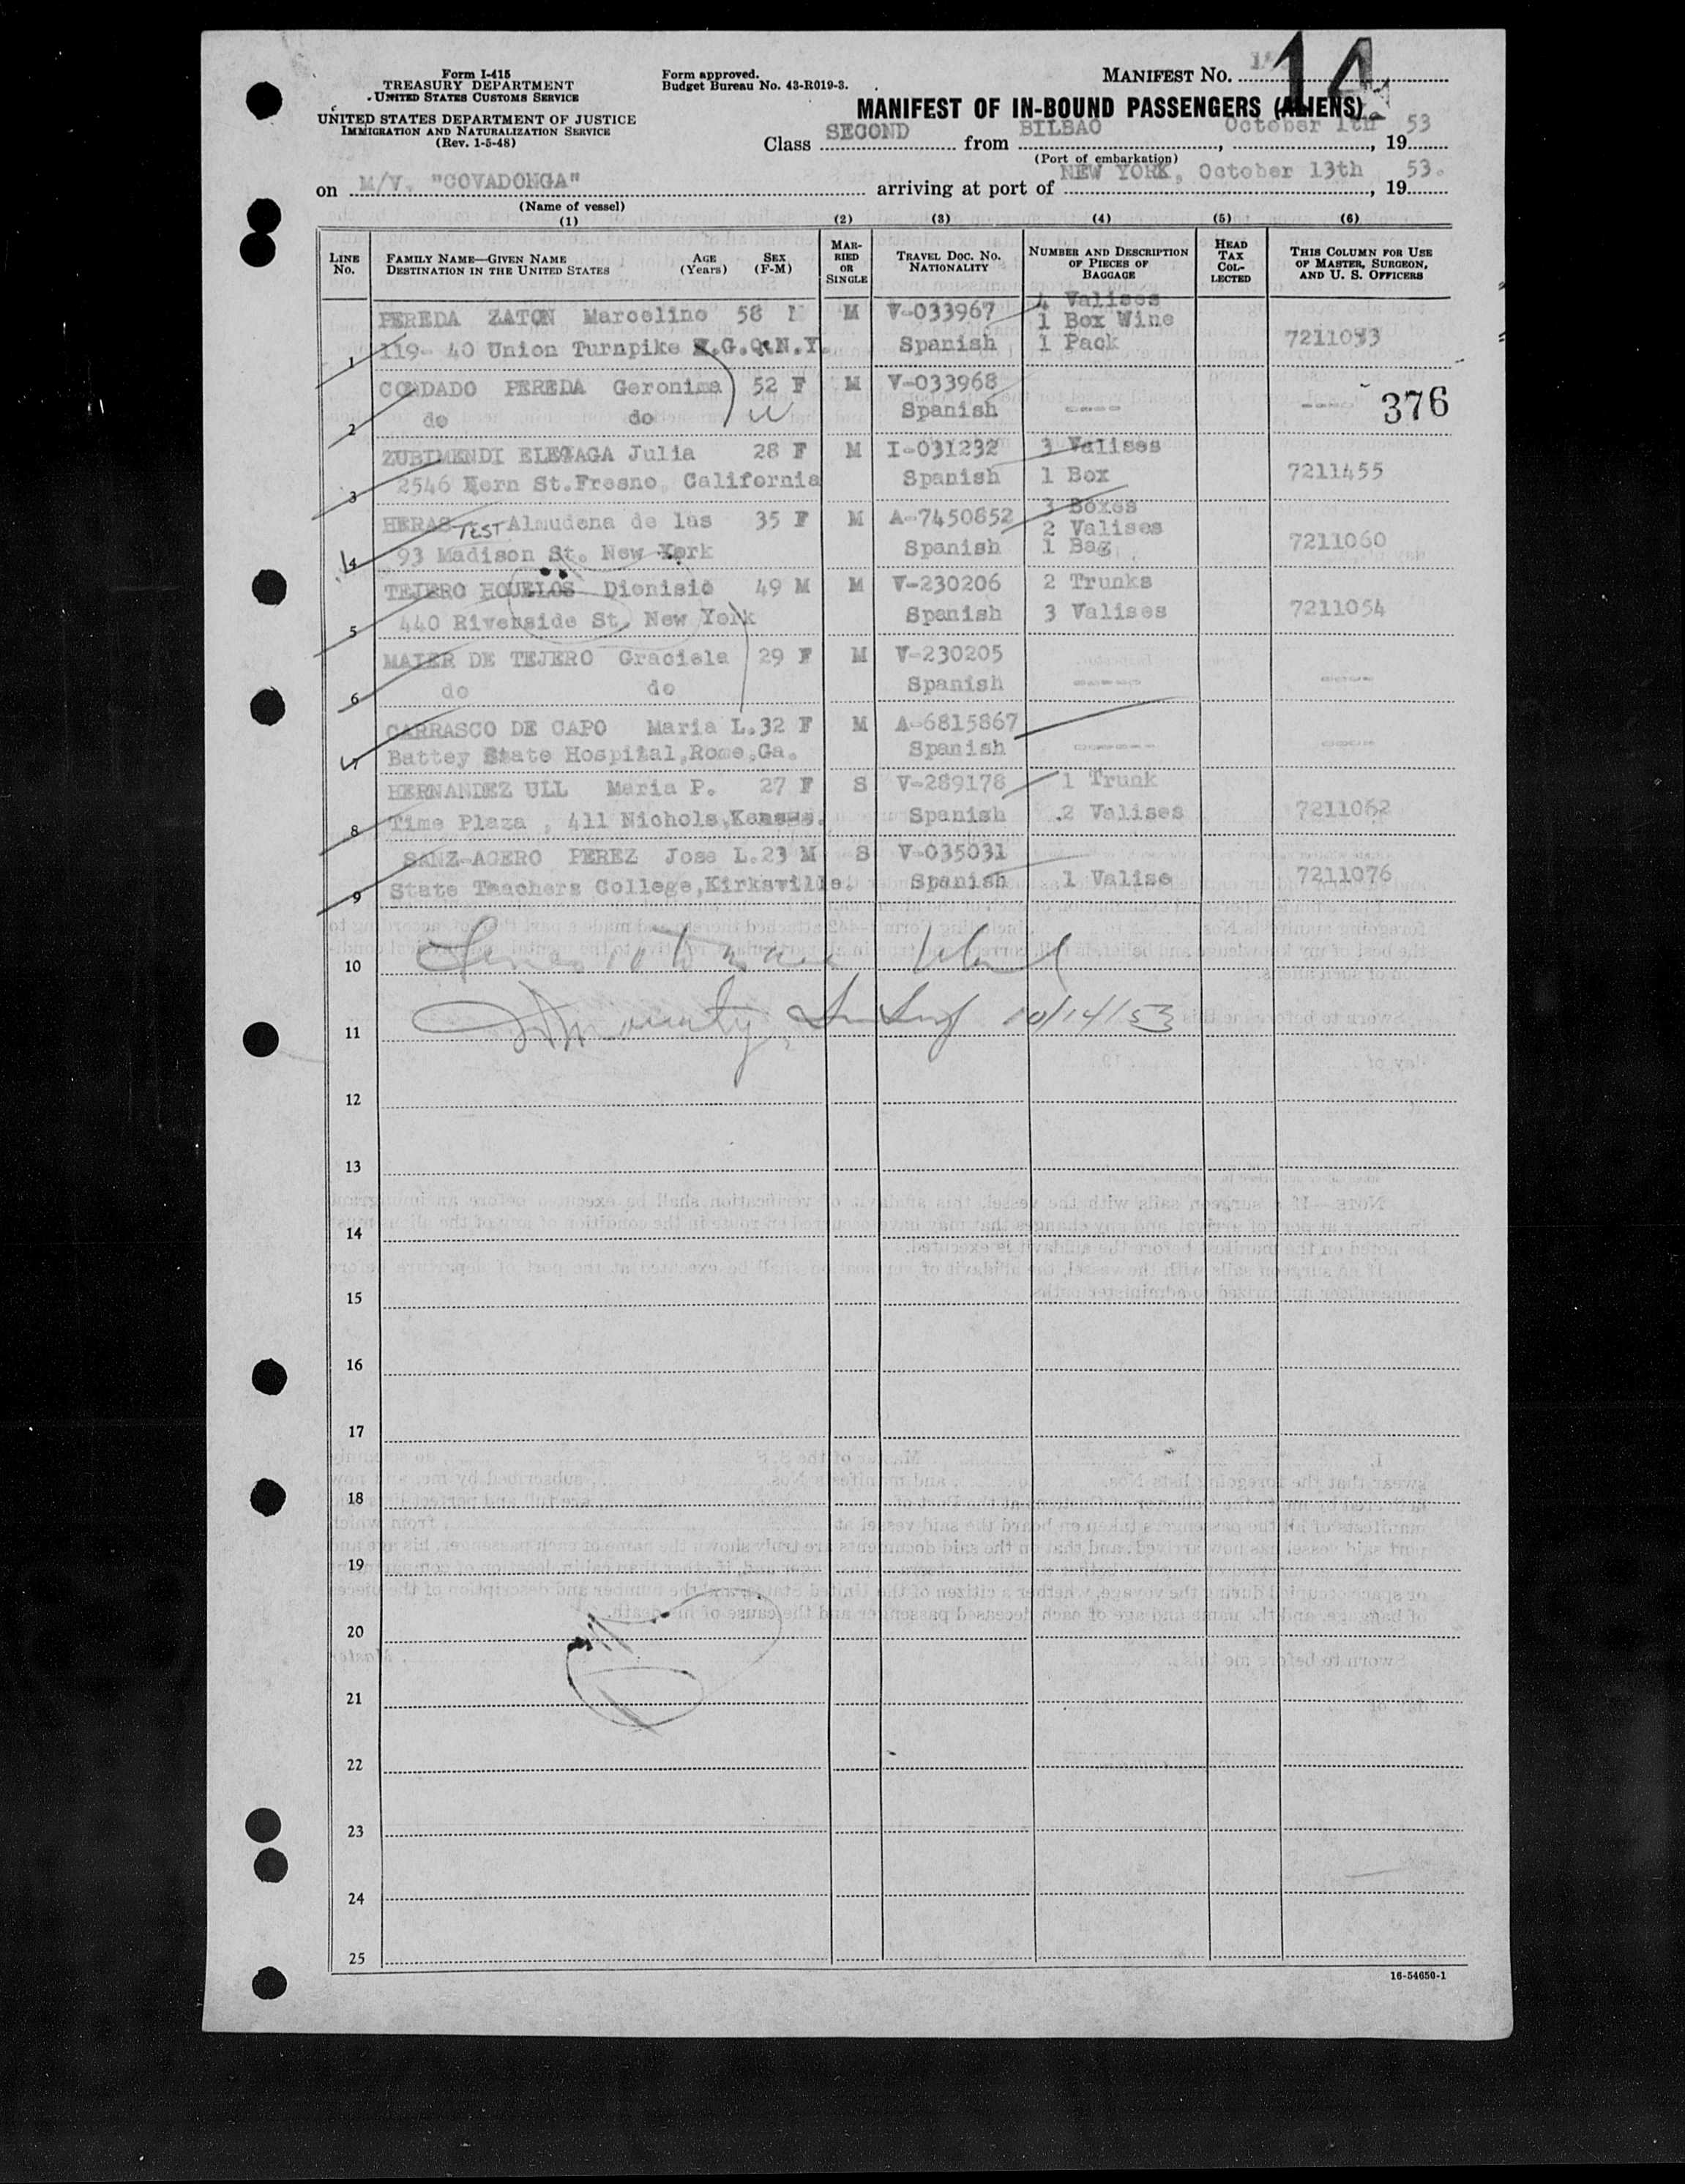 Form I-415
TREASURY DEPARTMENT
UNITED STATES CUSTOMS SERVICE
UNITED STATES DEPARTMENT OF JUSTICE
IMMIGRATION AND NATURALIZATION SERVICE
(Rev. 1-5-48)
Form approved.
Budget Bureau No. 43-R019-3.
MANIFEST NO. 14
MANIFEST OF IN-BOUND PASSENGERS (ALIENS)
Class SECOND from BILBAO, October 1th, 1953
(Port of embarkation)
on M/V. "COVADONGA" arriving at port of NEW YORK, October 13th, 1953.
(Name of vessel)
(1) (2) (3) (4) (5) (6)
LINE No. FAMILY NAME—GIVEN NAME DESTINATION IN THE UNITED STATES AGE (Years) SEX (F-M) MARRIED OR SINGLE TRAVEL DOC. NO. NATIONALITY NUMBER AND DESCRIPTION OF PIECES OF BAGGAGE HEAD TAX COLLECTED THIS COLUMN FOR USE OF MASTER, SURGEON, AND U. S. OFFICERS
PEREDA ZATON Marcelino 58 M M V-033967 4 Valises
1 Box Wine
1 119- 40 Union Turnpike K.G.Q.N.Y. Spanish 1 Pack 7211033
CONDADO PEREDA Geronima 52 F M V-033968
2 do do Spanish ---- ---- 376
ZUBIMENDI ELEJAGA Julia 28 F M I-031232 3 Valises
3 2546 Kern St.Fresno, California Spanish 1 Box 7211455
HERAS TEST Almudena de las 35 F M A-7450852 3 Boxes
2 Valises
4 93 Madison St. New York Spanish 1 Bag 7211060
TEJERO HOUELOS Dionisio 49 M M V-230206 2 Trunks
5 440 Riverside St. New York Spanish 3 Valises 7211054
MAIER DE TEJERO Graciela 29 F M V-230205
6 do do Spanish ----- ----
CARRASCO DE CAPO Maria L. 32 F M A-6815867
7 Battey State Hospital,Rome,Ga. Spanish ------ ----
HERNANDEZ ULL Maria P. 27 F S V-289178 1 Trunk
8 Time Plaza , 411 Nichols,Kansas. Spanish 2 Valises 7211062
SANZ-AGERO PEREZ Jose L. 23 M S V-035031
9 State Teachers College,Kirksville. Spanish 1 Valise 7211076
10
11 10/14/53
12
13
14
15
16
17
18
19
20
21
22
23
24
25
16-54650-1